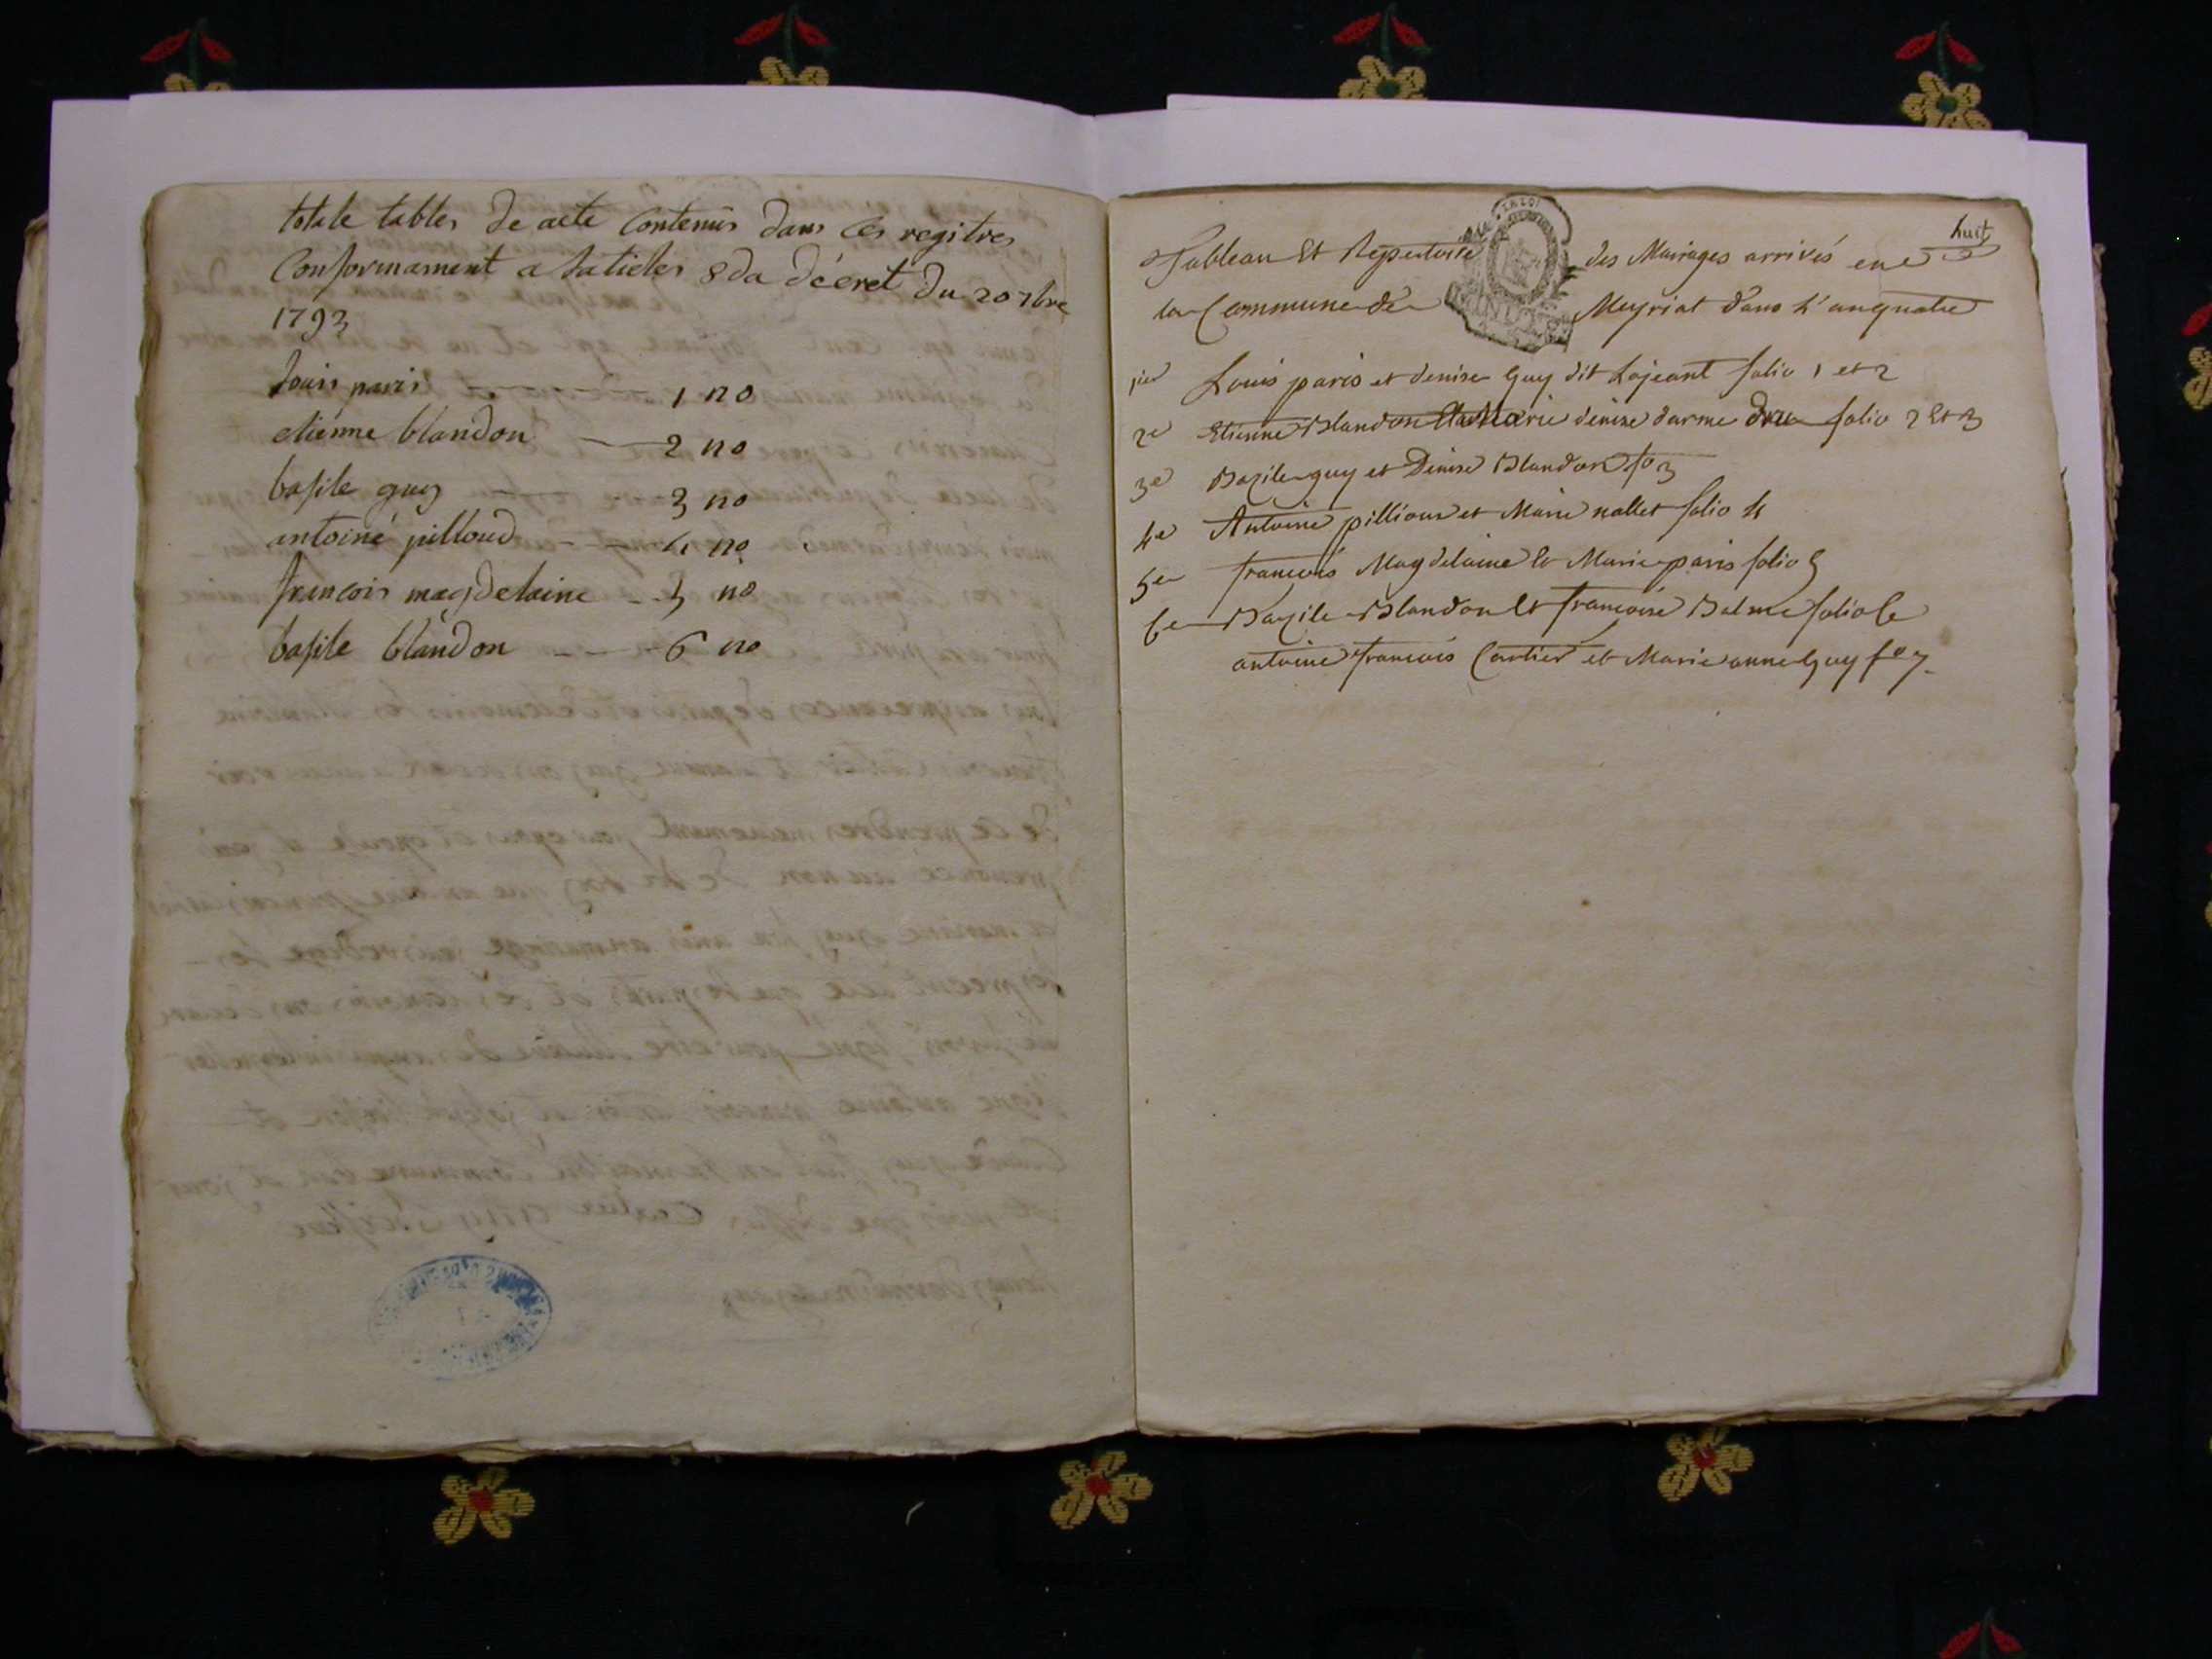 totale tables de acte Contenus dans les regitres
Conformament a laticles 8 da décret du 20 7bre
1793
louis paris 1 no
etiénne blandon 2 no
basile guy 3 no
antoiné pilloud 4 no
francois magdelaine 5 no
basile blandon 6 no
huit
Tableau Et Repertoire des Mariages arrivés en
la Commune de Meyriat dans L'an quatre
1er Louis paris et denise Guy dit Lojeant folio 1 et 2
2e Etienne Blandon Et Marie denise darme folio 2 Et 3
3e Bazile guy et Denise Blandon fo 3
4e Antoine pillioud et Marie nallet folio 4
5e francois Magdelaine Et Marie paris folio 5
6e Bazile Blandon Et francoise Balme folio 6
antoine francois Cartier et Marie anne Guy fo 7